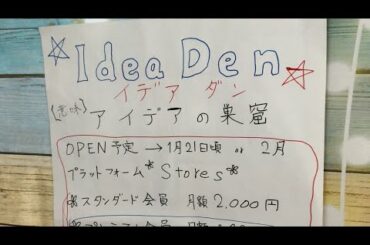 Idea Den
イデア ダン
【意味】アイデアの巣窟
OPEN予定 → 1月21日頃 or 2月
プラットフォーム* Stores*
スタンダード会員 月額 2,000円
プレミアム会員 月額